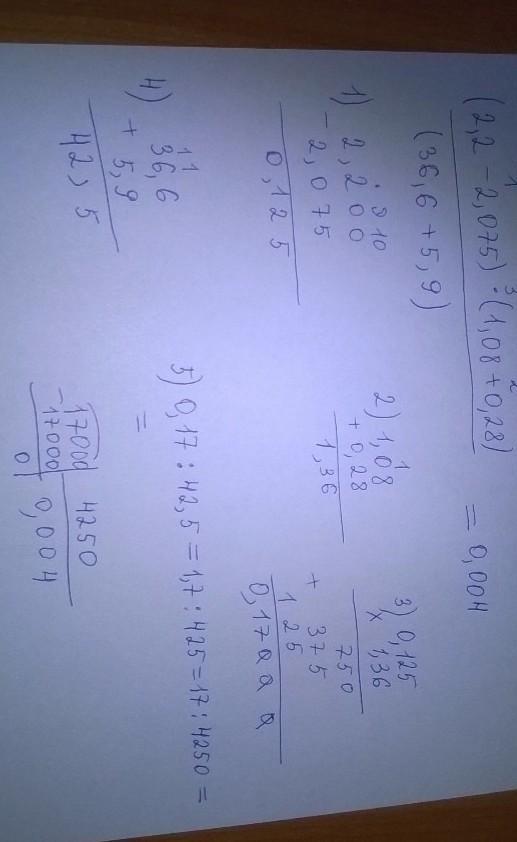 (2,2 - 2,075) · (1,08 + 0,28)
1 3 2
(36,6 + 5,9)
= 0,004
1) 2,200
- 2,075
0,125
2) 1,08
+ 0,28
1,36
3) 0,125
x 1,36
750
+ 375
125
0,17000
4) 36,6
+ 5,9
42,5
5) 0,17 : 42,5 = 1,7 : 425 = 17 : 4250 =
=
17000 4250
- 17000 0,004
0